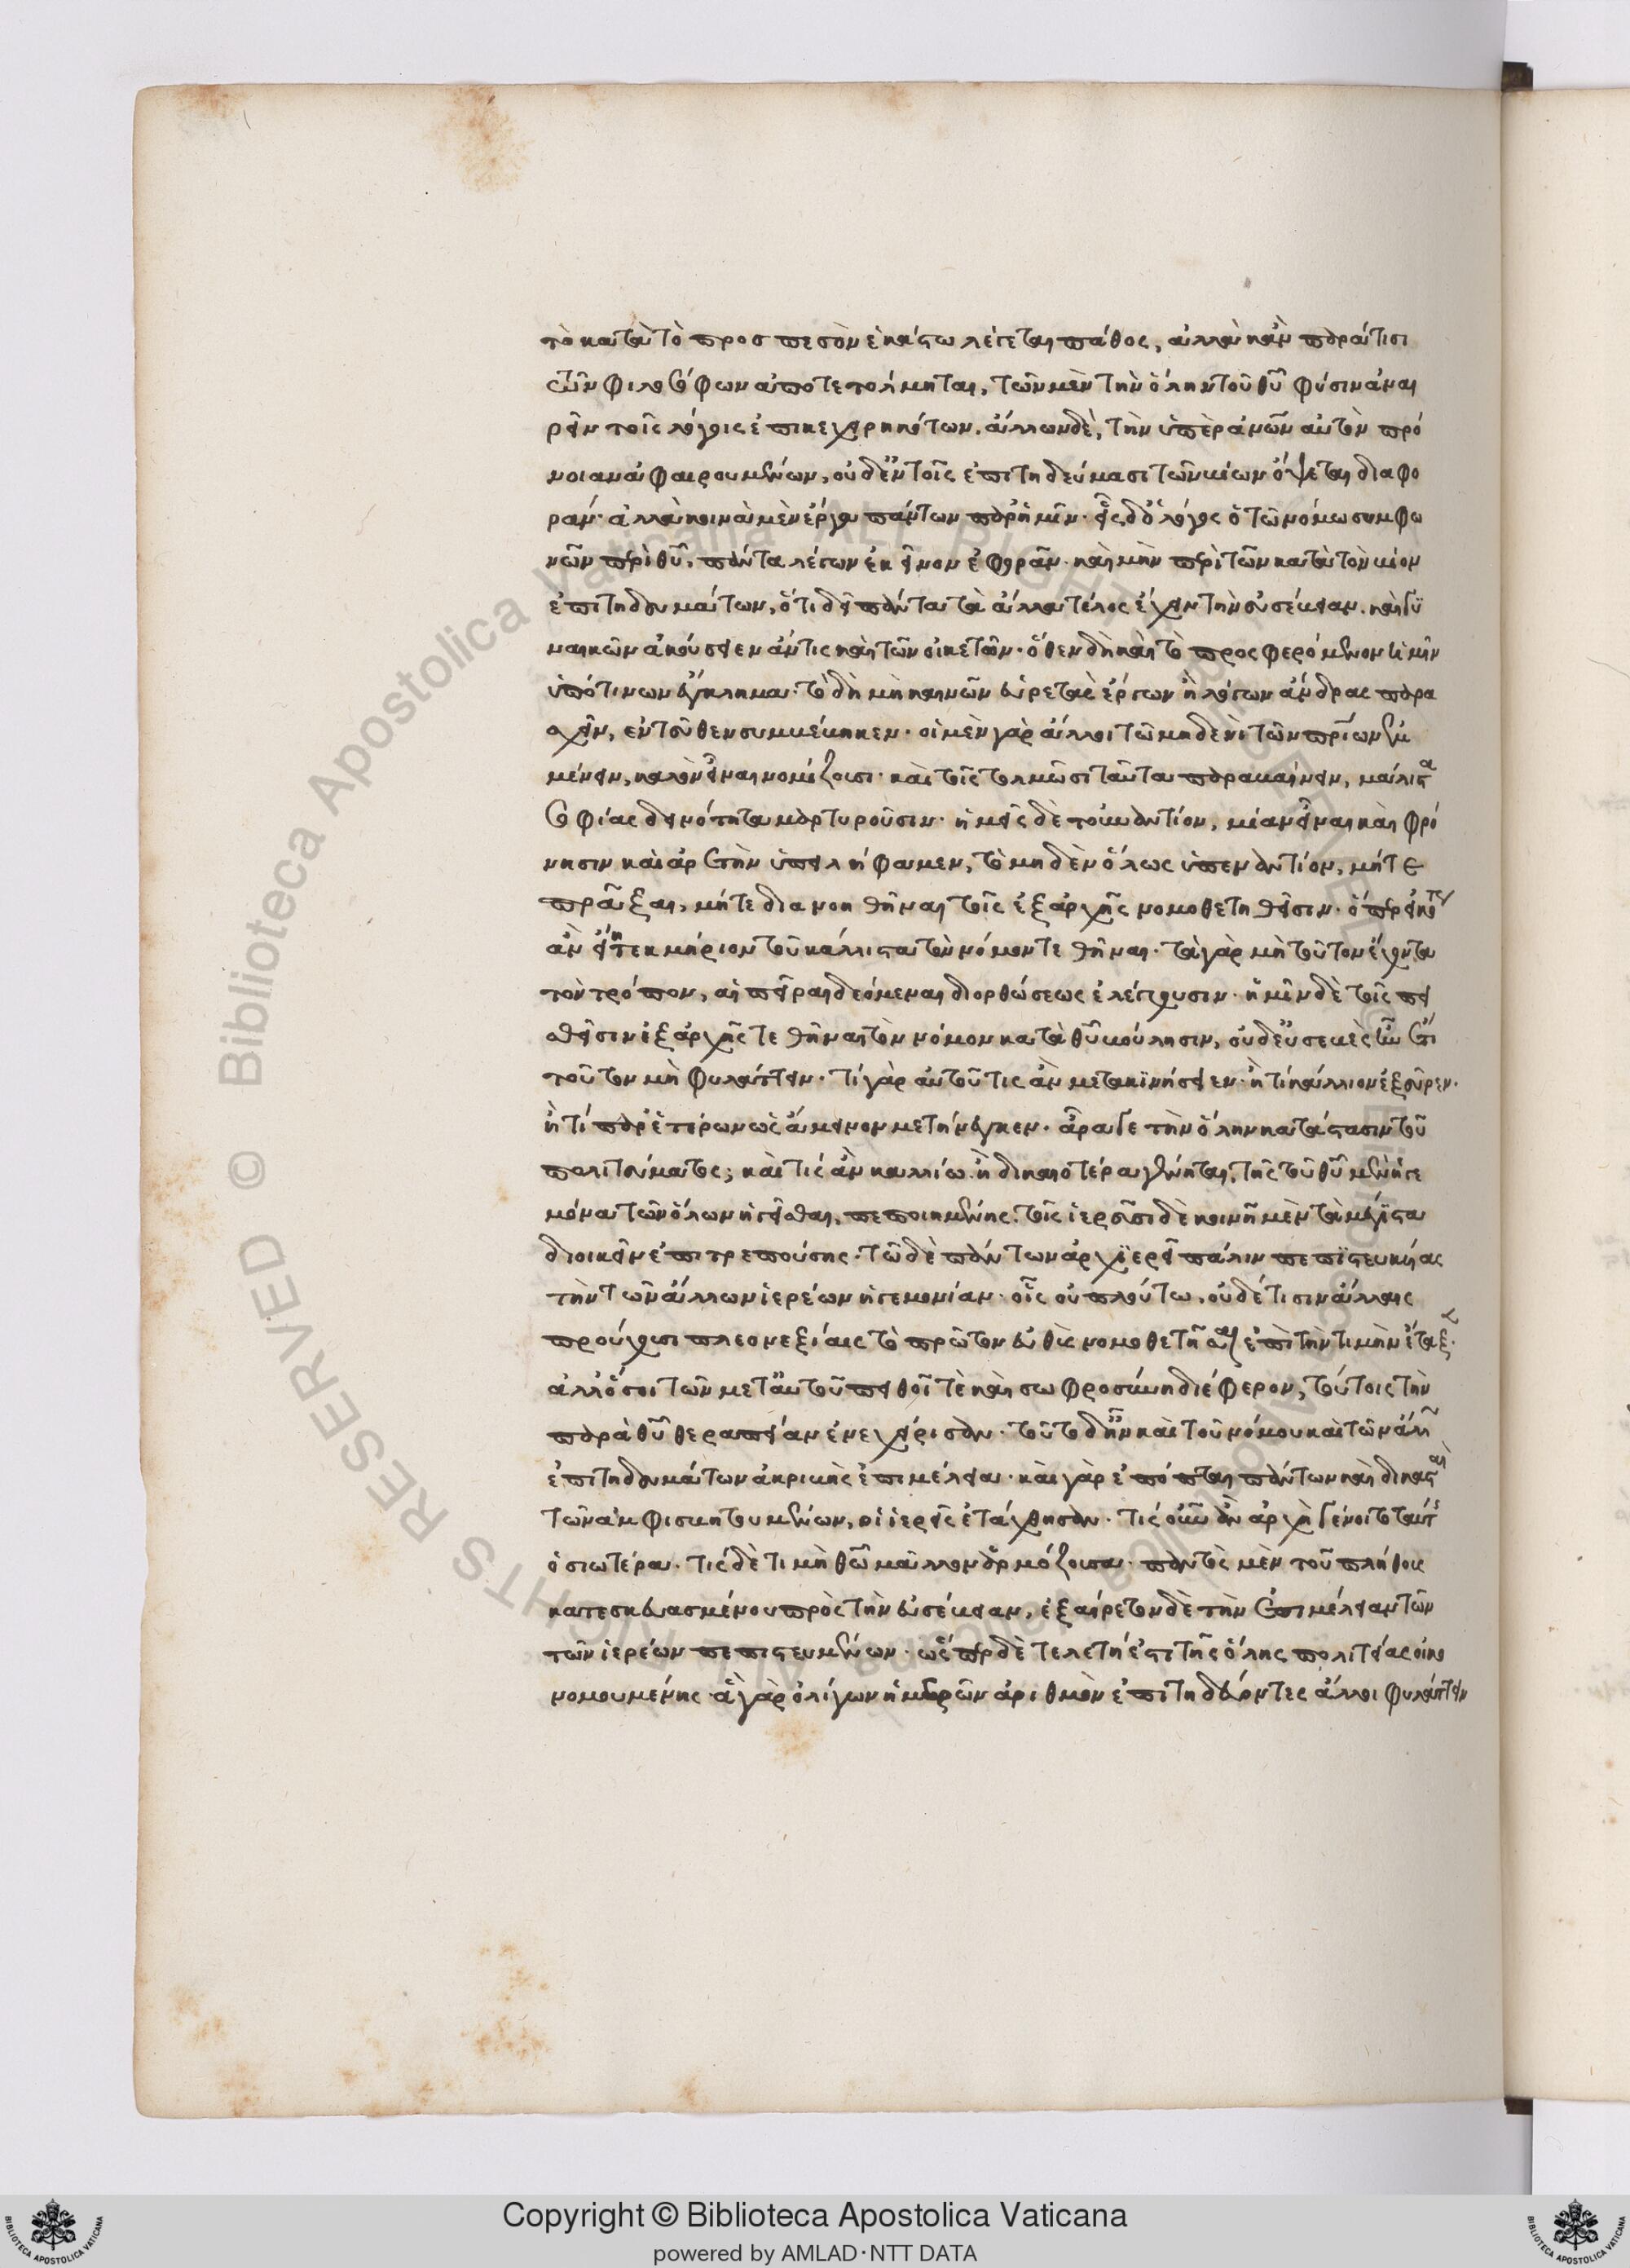 τὸ κατὰ τὸ προσπεσὸν ἑκάστω λέγεται πάθος, ἀλλὰ κἂν παρά τισι
τῶν φιλοσόφων ἀποτετόλμηται, τῶν μὲν τὴν ὅλην τοῦ θῦ φύσιν ἀναι
ρεῖν τοῖς λόγοις ἐπικεχειρηκότων. ἄλλων δὲ, τὴν ὑπὲρ ἀνῶν αὐτὸν πρό
νοιαν ἀφαιρουμένων, οὐδ' ἐν τοῖς ἐπιτηδεύμασι τῶν βίων ὄψεται διαφο
ράν· ἀλλὰ κοινὰ μὲν ἔργα πάντων παρ' ἡμῖν· εἷς δ' ὁ λόγος ὁ τῶ νόμω συμφω
νῶν περὶ θῦ, πάντα λέγων ἐκεῖνον ἐφορᾶν· καὶ μὴν περὶ τῶν κατὰ τὸν βίον
ἐπιτηδευμάτων, ὅτι δεῖ πάντα τὰ ἄλλα τέλος ἔχειν τὴν εὐσέβειαν. καὶ γυ
ναικῶν ἀκούσειεν ἄν τις καὶ τῶν οἰκετῶν· ὅθεν δὴ καὶ τὸ προσφερόμενον ἡμῖν
ὑπό τινων ἔγκλημα· τὸ δὴ μὴ καινῶν εὑρετὰς ἔργων ἢ λόγων ἄνδρας παρα
σχεῖν, ἐντεῦθεν συμβέβηκεν· οἱ μὲν γὰρ ἄλλοι τῶ μηδενὶ τῶν πρίων ἐμ
μένειν, καλὸν εἶναι νομίζουσι· καὶ τοῖς τολμῶσι ταῦτα παραβαίνειν, μάλιστα
σοφίας δεινότητα μαρτυροῦσιν· ἡμεῖς δὲ τοὐναντίον, μίαν εἶναι καὶ φρό
νησιν καὶ ἀρετὴν ὑπειλήφαμεν, τὸ μηδὲν ὅλως ὑπεναντίον, μήτε
πρᾶξαι, μήτε διανοηθῆναι τοῖς ἐξαρχῆς νομοθετηθεῖσιν· ὅπερ εἰκότως
ἂν εἴη τεκμήριον τοῦ κάλλιστα τὸν νόμον τεθῆναι· τὰ γὰρ μὴ τοῦτον ἔχοντα
τὸν τρόπον, αἱ πεῖραι δεόμεναι διορθώσεως ἐλέγχουσιν· ἡμῖν δὲ τοῖς πει
σθεῖσιν ἐξαρχῆς τεθῆναι τὸν νόμον κατὰ θῦ βούλησιν, οὐδ' εὐσεβὲς ἦν ἔτι
τοῦτον μὴ φυλάττειν· τί γὰρ αὐτοῦ τις ἂν μετακινήσειεν· ἢ τί κάλλιον ἐξεῦρεν·
ἢ τί παρ' ἑτέρων ὡς ἄμεινον μετήνεγκεν· ἆρά γε τὴν ὅλην κατάστασιν τοῦ
πολιτεύματος; καὶ τίς ἂν καλλίω. ἢ δικαιοτέρα γένηται, τῆς τοῦ θῦ μὲν ἡγε
μόνα τῶν ὅλων ἡγεῖσθαι, πεποιημένης. τοῖς ἱερεῦσι δὲ κοινῆ μὲν τὰ μέγιστα
διοικεῖν ἐπιτρεπούσης· τῶ δὲ πάντων ἀρχιερεῖ πάλιν πεπιστευκυίας
τὴν τῶν ἄλλων ἱερέων ἡγεμονίαν· οἷς οὐ πλούτω, οὐδέ τισιν ἄλλαις
προύχουσι πλεονεξίαις τὸ πρῶτον εὐθὺς νομοθέτης ἐπὶ τὴν τιμὴν ἔταξεν·
ἀλλ' ὅσοι τῶν μετ' αὐτοῦ πειθοῖ τὲ καὶ σωφροσύνη διέφερον, τούτοις τὴν
παρὰ θῦ θεραπείαν ἐνεχείρισαν· τοῦτο δ' ἦν καὶ τοῦ νόμου καὶ τῶν ἄλλων
ἐπιτηδευμάτων ἀκριβὴς ἐπιμέλεια· καὶ γὰρ ἐπόπται πάντων καὶ δικασταὶ
τῶν ἀμφισβητουμένων, οἱ ἱερεῖς ἐτάχθησαν· τίς οὖν ἂν ἀρχὴ γένοιτο ταύτης
ὁσιωτέρα· τίς δὲ τιμὴ θῶ μᾶλλον ἁρμόζουσα· παντὸς μὲν τοῦ πλήθους
κατεσκευασμένου πρὸς τὴν εὐσέβειαν, ἐξαίρετον δὲ τὴν ἐπιμέλειαν τῶν
τῶν ἱερέων πεπιστευμένων· ὥσπερ δὲ τελετή ἐστι τῆς ὅλης πολιτείας οἰκο
νομουμένης· ἃ γὰρ ὀλίγων ἡμερῶν ἀριθμὸν ἐπιτηδεύοντες ἄλλοι φυλάττειν